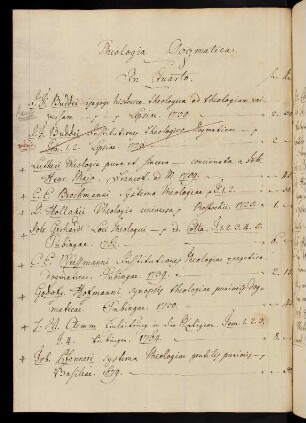 Theologia Dogmatica.
In Quarto.
J. F. Buddei isagoge historico-theologica ad theologiam uni
versam. Lipsiae. 1730.
J. F. Buddei Institutiones Theologiae Dogmaticae
Tom. 1. 2. Lipsiae 1723.
Lutheri theologia pura et sincera concinnata a Joh.
Henr. Majo. Francof. ad M. 1709.
C. E. Brochmanni systema Theologiae P. 1. 2.
D. Hollazii theologia universa. Rostochii 1725.
Joh. Gerhardi Loci Theologici ed. Cotta. T. 1. 2. 3. 4. 5.
Tubingae. 1762.
C. E. Weissmanni Institutiones theologiae exegetico
dogmaticae. Tubingae. 1739.
Godofr. Hofmanni synopsis theologiae purioris dog
maticae. Tubingae. 1730.
H. W. Clemm Einleitung in die Religion. Tom. 1. 2. 3.
4. Tübingen. 1764.
Joh. Pfanneri systema theologiae gentilis purioris.
Basileae. 1679.